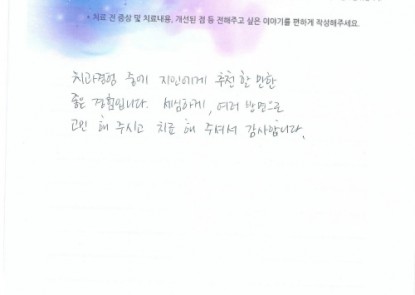 * 치료 전 증상 및 치료내용, 개선된 점 등 전해주고 싶은 이야기를 편하게 작성해주세요.
치과경험 중에 지인에게 추천할 만한
좋은 경험입니다. 세심하게, 여러 방면으로
고민 해 주시고 치료 해 주셔서 감사합니다.